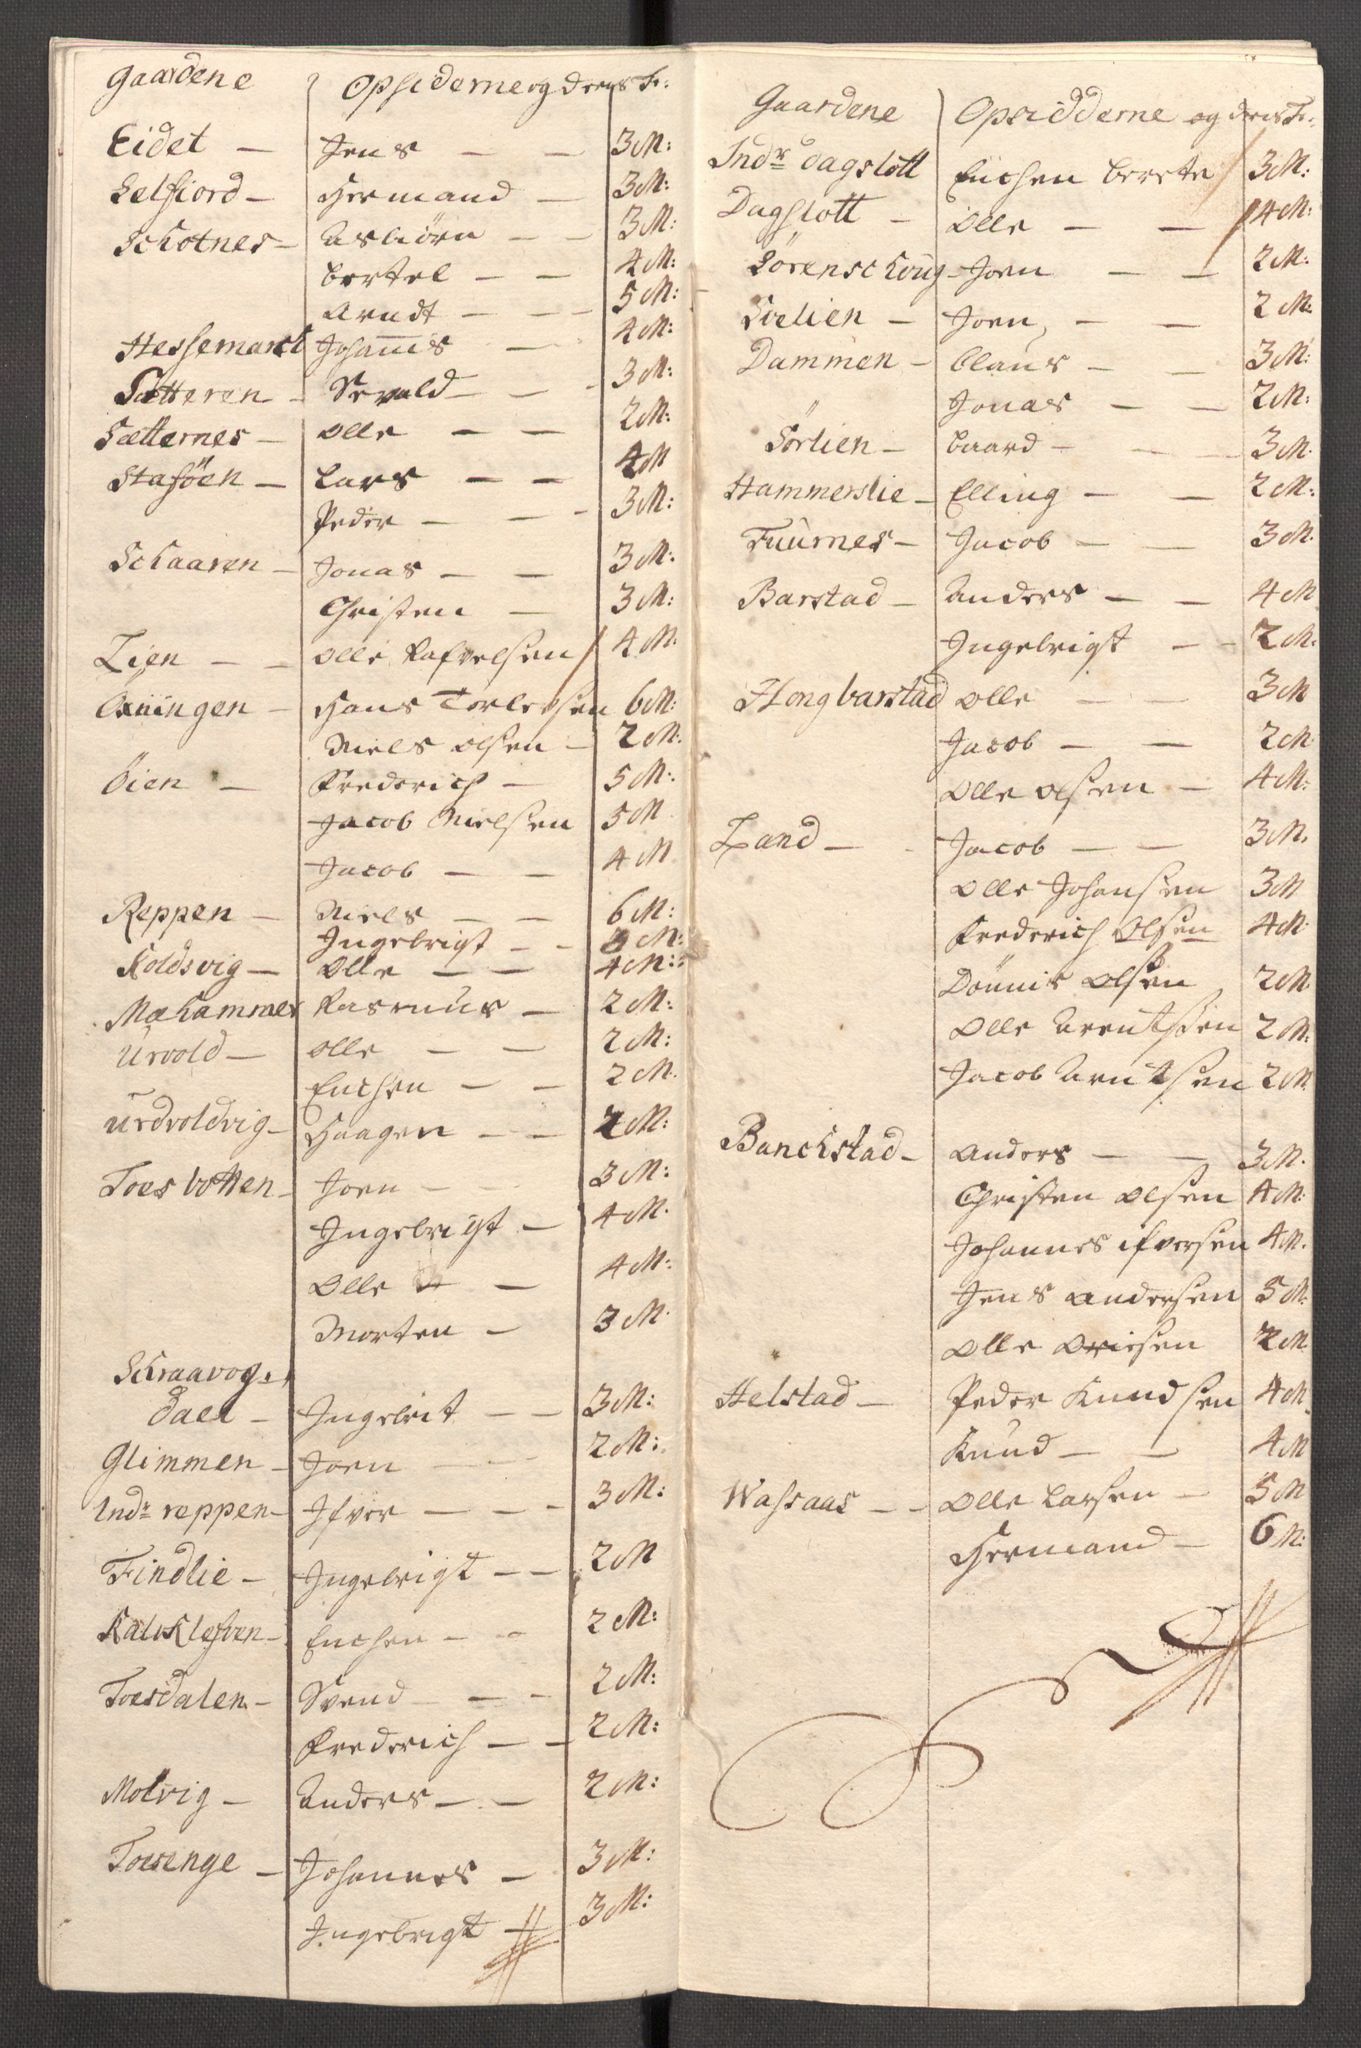 Gaardene Opsiderne og deres F:
Eidet — Jens — — 3 M:
Lelfiord — Hermand — 3 M:
Schotnes — Asbiörn — — 3 M:
Bertel — — 4 M:
Arndt — — 5 M:
Hessemarch Johannis — 4 M:
Sætteren — Sevald — — 3 M:
Sætternes — Olle — — 2 M:
Staföen — Lars — — 4 M
Peder — — — 3 M:
Schaaren — Jonas — — 3 M:
Christen — 3 M:
Lien — — Olle Rafvelsen / 4 M:
Hans Torlefsen 6 M:
Niels Olsen — 2 M:
Öien — Frederich — 5 M:
Jacob Nielsen 5 M
Jacob — — 4 M
Reppen — Niels — — 6 M:
Ingebrigt — — M:
Koldsvig — Olle — — 4 M:
Mæhammer Rasmus — 2 M:
Urvold — Olle — — 2 M:
Enchen — — 2 M.
Urdvoldvig — Haagen — — 2 M:
Toesbotten — Joen — 3 M:
Ingebrigt — 4 M.
Olle — — 4 M:
Morten — 3 M.
Schraavog
dael — Ingebrit — — 3 M:
Glimmen — Joen — — 2 M:
Indr reppen — Ifver — — — 3 M:
Findlie — Ingebrigt — — 2 M
Kalvkleften — Enchen — — 2 M:
Toesdalen — Svend — — — 2 M:
Frederich — — 2 M:
Molvig — Anders — — 2 M:
Toesenge — Johannes — 3 M:
Ingebrigt — 3 M:
Gaardene Opsidderne og deres F.
Indr dagslott Enchen Berete / 3 M:
Dagslott — Olle — — 4 M:
Sörenschoug — Joen — — 2 M:
Soelien — Joen, — — 2 M:
Dammen — Claus — — 3 M:
Jonas — — 2 M:
Sörlien — Baard — — 3 M.
Hammerslie — Elling — — 2 M:
Fuurnes — Jacob — — 3 M.
Barstad — Anders — — 4 M
Ingebrigt — — 2 M.
Hongbarstad Olle — — 3 M
Jacob — — 2 M
Olle Olsen — 4 M:
Land — — Jacob — — 3 M.
Olle Johansen 3 M
Frederich Olsen 4 M.
Dönnis Olsen 2 M.
Olle Arentsen 2 M:
Jacob Arntsen 2 M.
Banchstad — Anders — — 3 M.
Christen Olsen 4 M.
Johannes Ifversen 4 M.
Jens Andersen 5 M:
Olle 2 M
Helstad — Peder Knudsen 4 M
Knud — — 4 M
Wassaas — — Olle Larsen — 5 M
Hermand — 6 M: